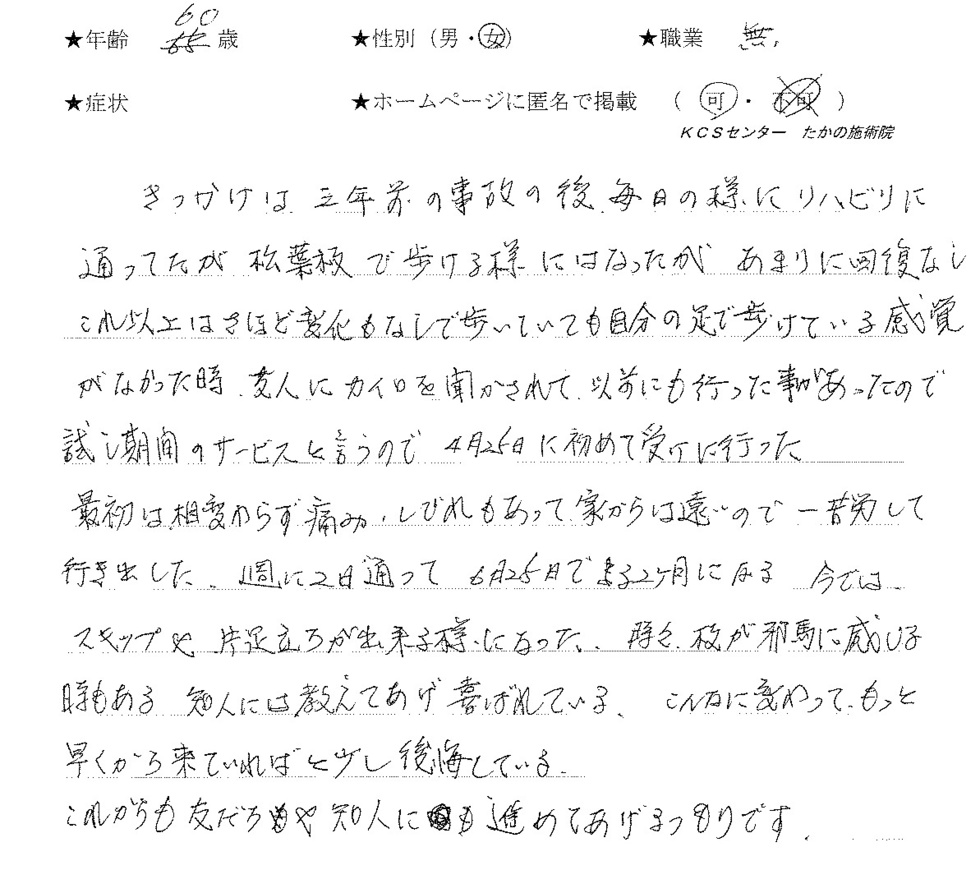 ★年齢 60 歳 ★性別(男・女) ★職業 無
★症状 ★ホームページに匿名で掲載 (可・不可)
KCSセンター たかの施術院
きっかけは 三年前の事故の後、毎日の様にリハビリに
通ってたが 松葉板で歩ける様にはなったが あまりに回復なし
これ以上はさほど変化もなしで歩いていても自分の足で歩けている感覚
がなかった時、友人にカイロを聞かされて、以前にも行った事があったので
試し期間のサービスと言うので 4月25日に初めて受けに行った
最初は相変わらず痛み、しびれもあって家からは遠いので一苦労して
行き出した、週に2日通って 6月25日でまる2ヶ月になる 今では、
スキップや 片足立ちが出来る様になった、時々、杖が邪馬に感じる
時もある 知人には教えてあげ喜ばれている、 こんなに変わって、もっと
早くから来ていればと少し後悔している、
これからも友だちや知人にも進めてあげるつもりです、